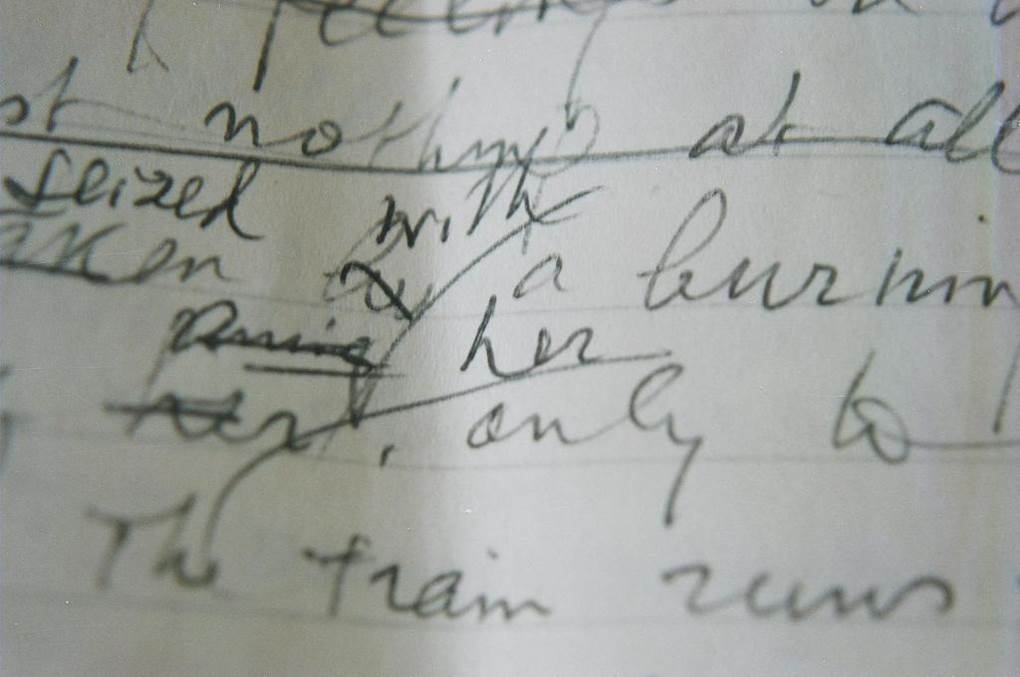 feelings
st nothing at all
seized with
aken by a burnin
her
her, only to
The train runs